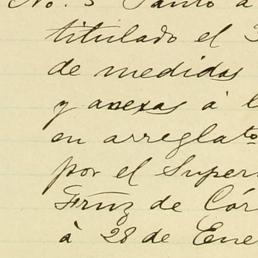 No. 3 Santo a
titulado el
de medidas
y anexas à l
en arreglato
por el Super
Frnz de Cór
à 28 de Ene